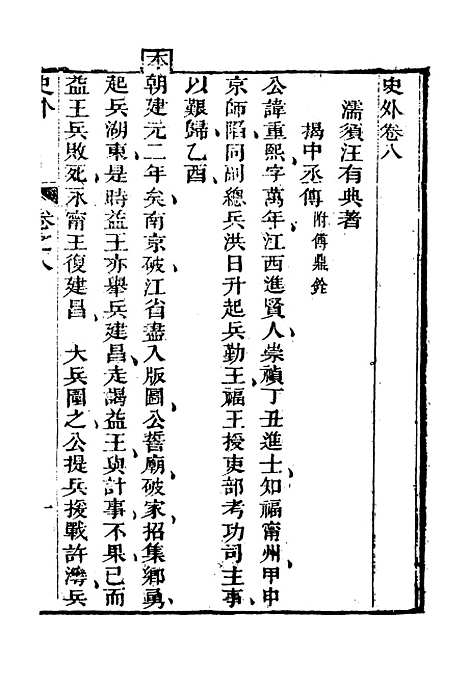 史外卷八
濡須汪有典著
揭中丞傳附傅鼎銓
公諱重熙字萬年江西進賢人崇禎丁丑進士知福甯州甲申
京師陷同副總兵洪日升起兵勤王福王授吏部考功司主事
以艱歸乙酉
本朝建元二年矣南京破江省盡入版圖公誓廟破家招集鄉勇
起兵湖東是時益王亦舉兵建昌走謁益王與計事不果已而
益王兵敗死永甯王復建昌 大兵圍之公提兵援戰許灣兵
史外 卷之八 一